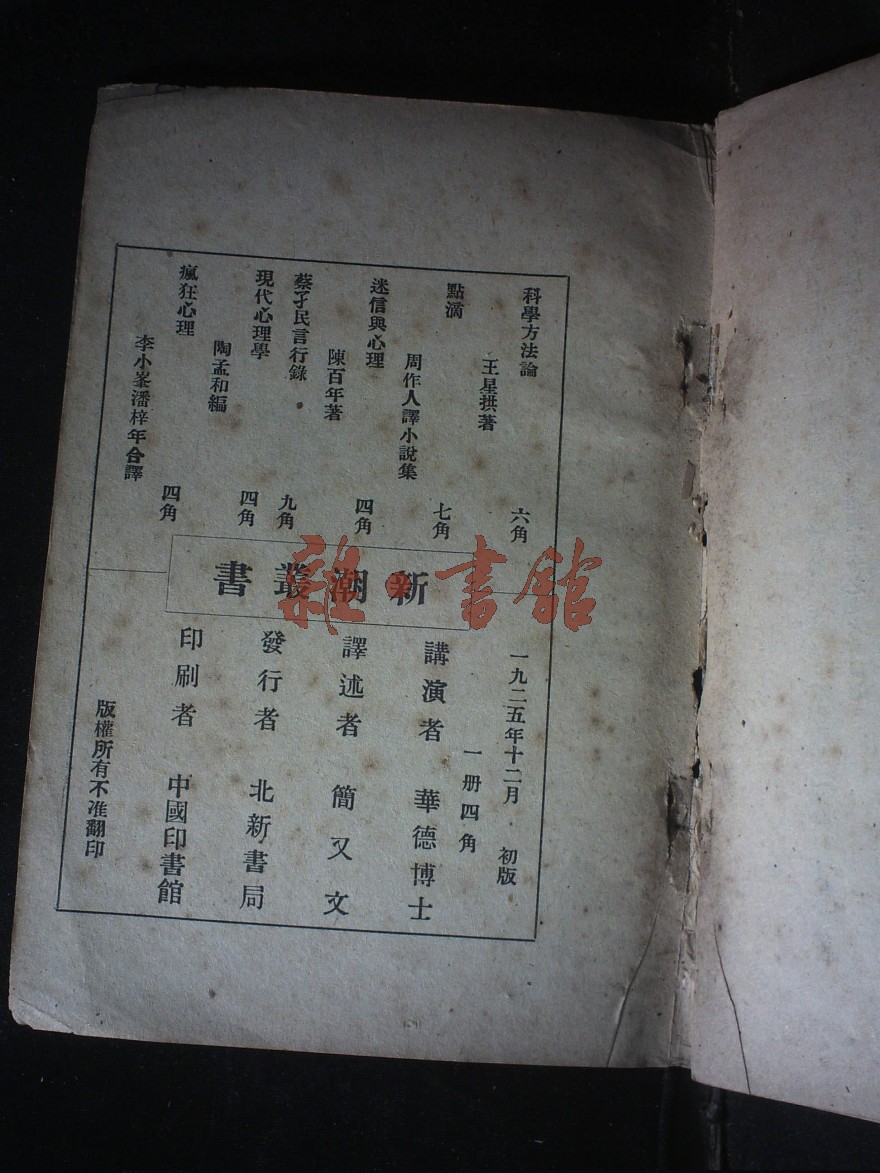 科學方法論
王星拱著
六角
點滴
周作人譯小說集
七角
迷信與心理
陳百年著
四角
蔡孑民言行錄
九角
現代心理學
陶孟和編
四角
瘋狂心理
李小峯潘梓年合譯
四角
新潮叢書
一九二五年十二月 初版
一册四角
講演者 華德博士
譯述者 簡又文
發行者 北新書局
印刷者 中國印書館
版權所有不准翻印
雜·書館